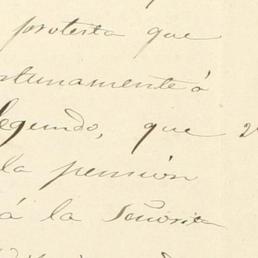 protesta que
rtunamente á
Segundo, que
la pensión
á la Señorita